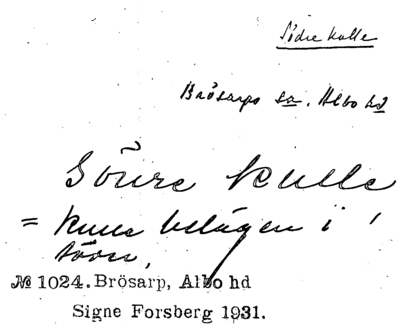 Södre kulle
Brösarps sn. Albo hd
Söure kulle
= kulle belägen i
№ 1024. Brösarp, Albo hd
Signe Forsberg 1931.